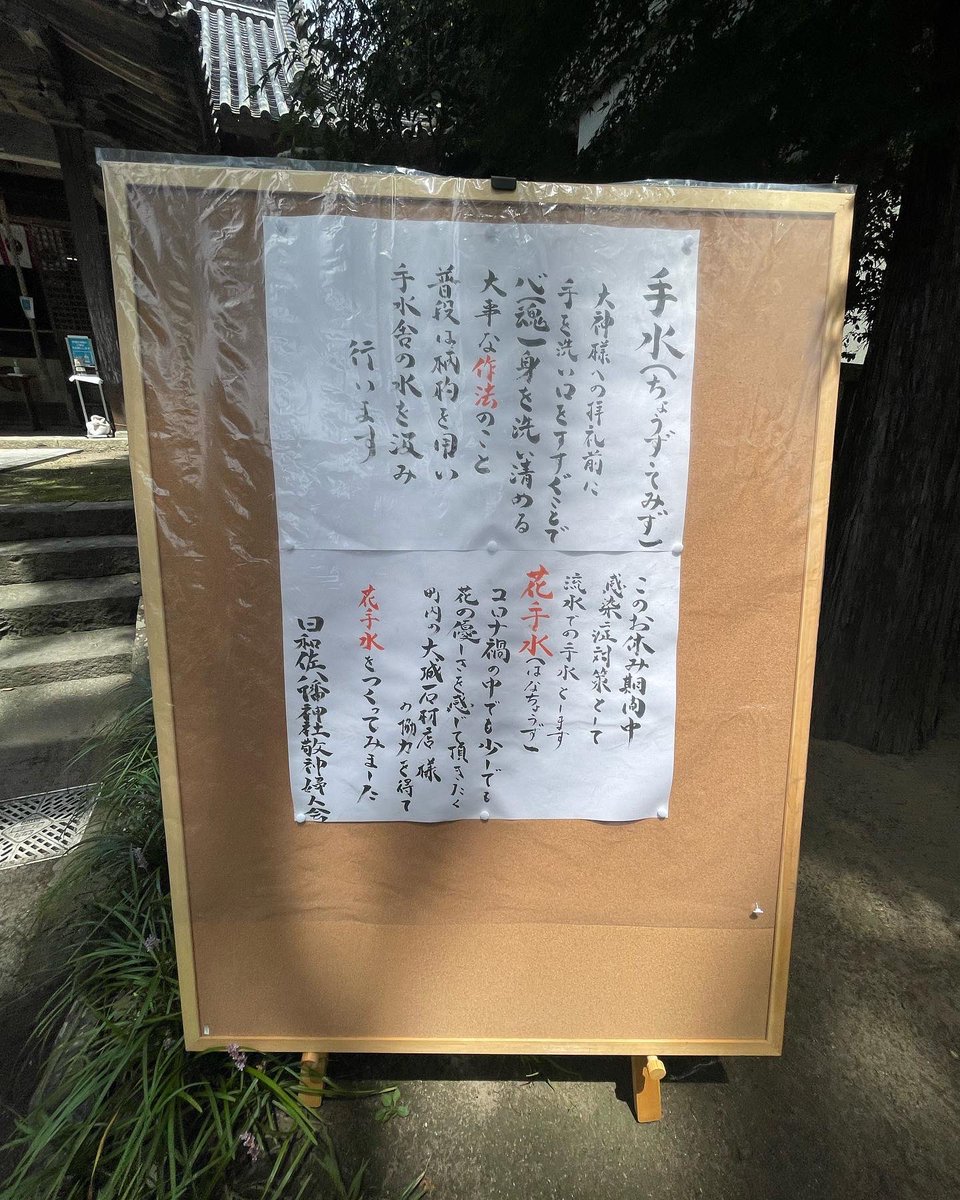 手水(ちょうず・てみず)
大神様への拝礼前に
手を洗い口をすすぐことで
心(魂)身を洗い清める
大事な作法のこと
普段は柄杓を用い
手水舎の水を汲み
行います
このお休み期間中
感染症対策として
流水での手水とします
花手水(はなちょうず)
コロナ禍の中でも少しでも
花の優しさを感じて頂きたく
町内の大城石材店様
の協力を得て
花手水をつくってみました
日和佐八幡神社敬神婦人会